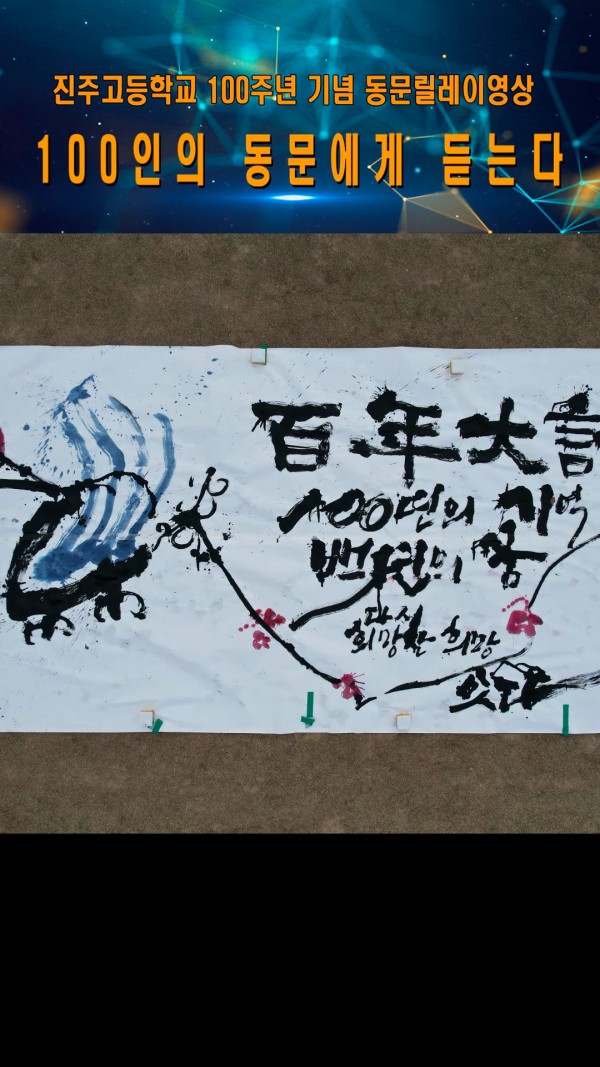 진주고등학교 100주년 기념 동문릴레이영상
100인의 동문에게 듣는다
百年大計
100년의 기억
백년의 꿈
다시
희망 희망